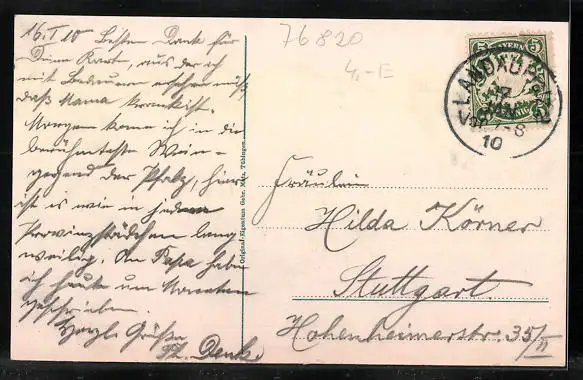 16.I 10 Besten Dank für
Deine Karte, aus der ich
mit Bedauern ersehen muß,
daß Mama krank ist.
Morgen komm ich in die
berühmteste Wein-
gegend der Pfalz, hier
ist es wie in jedem
Provinzstädtchen lang
weilig. An Papa habe
ich heute um Moneten
geschrieben.
Herzl. Grüße
Denk.
Original-Eigentum Gebr. Metz, Tübingen.
76820
4,-E
BAYERN
5 5
LANDAU PFALZ
17 JAN
7-8
10
Fräulein
Hilda Körner
Stuttgart.
Hohenheimerstr. 35/II